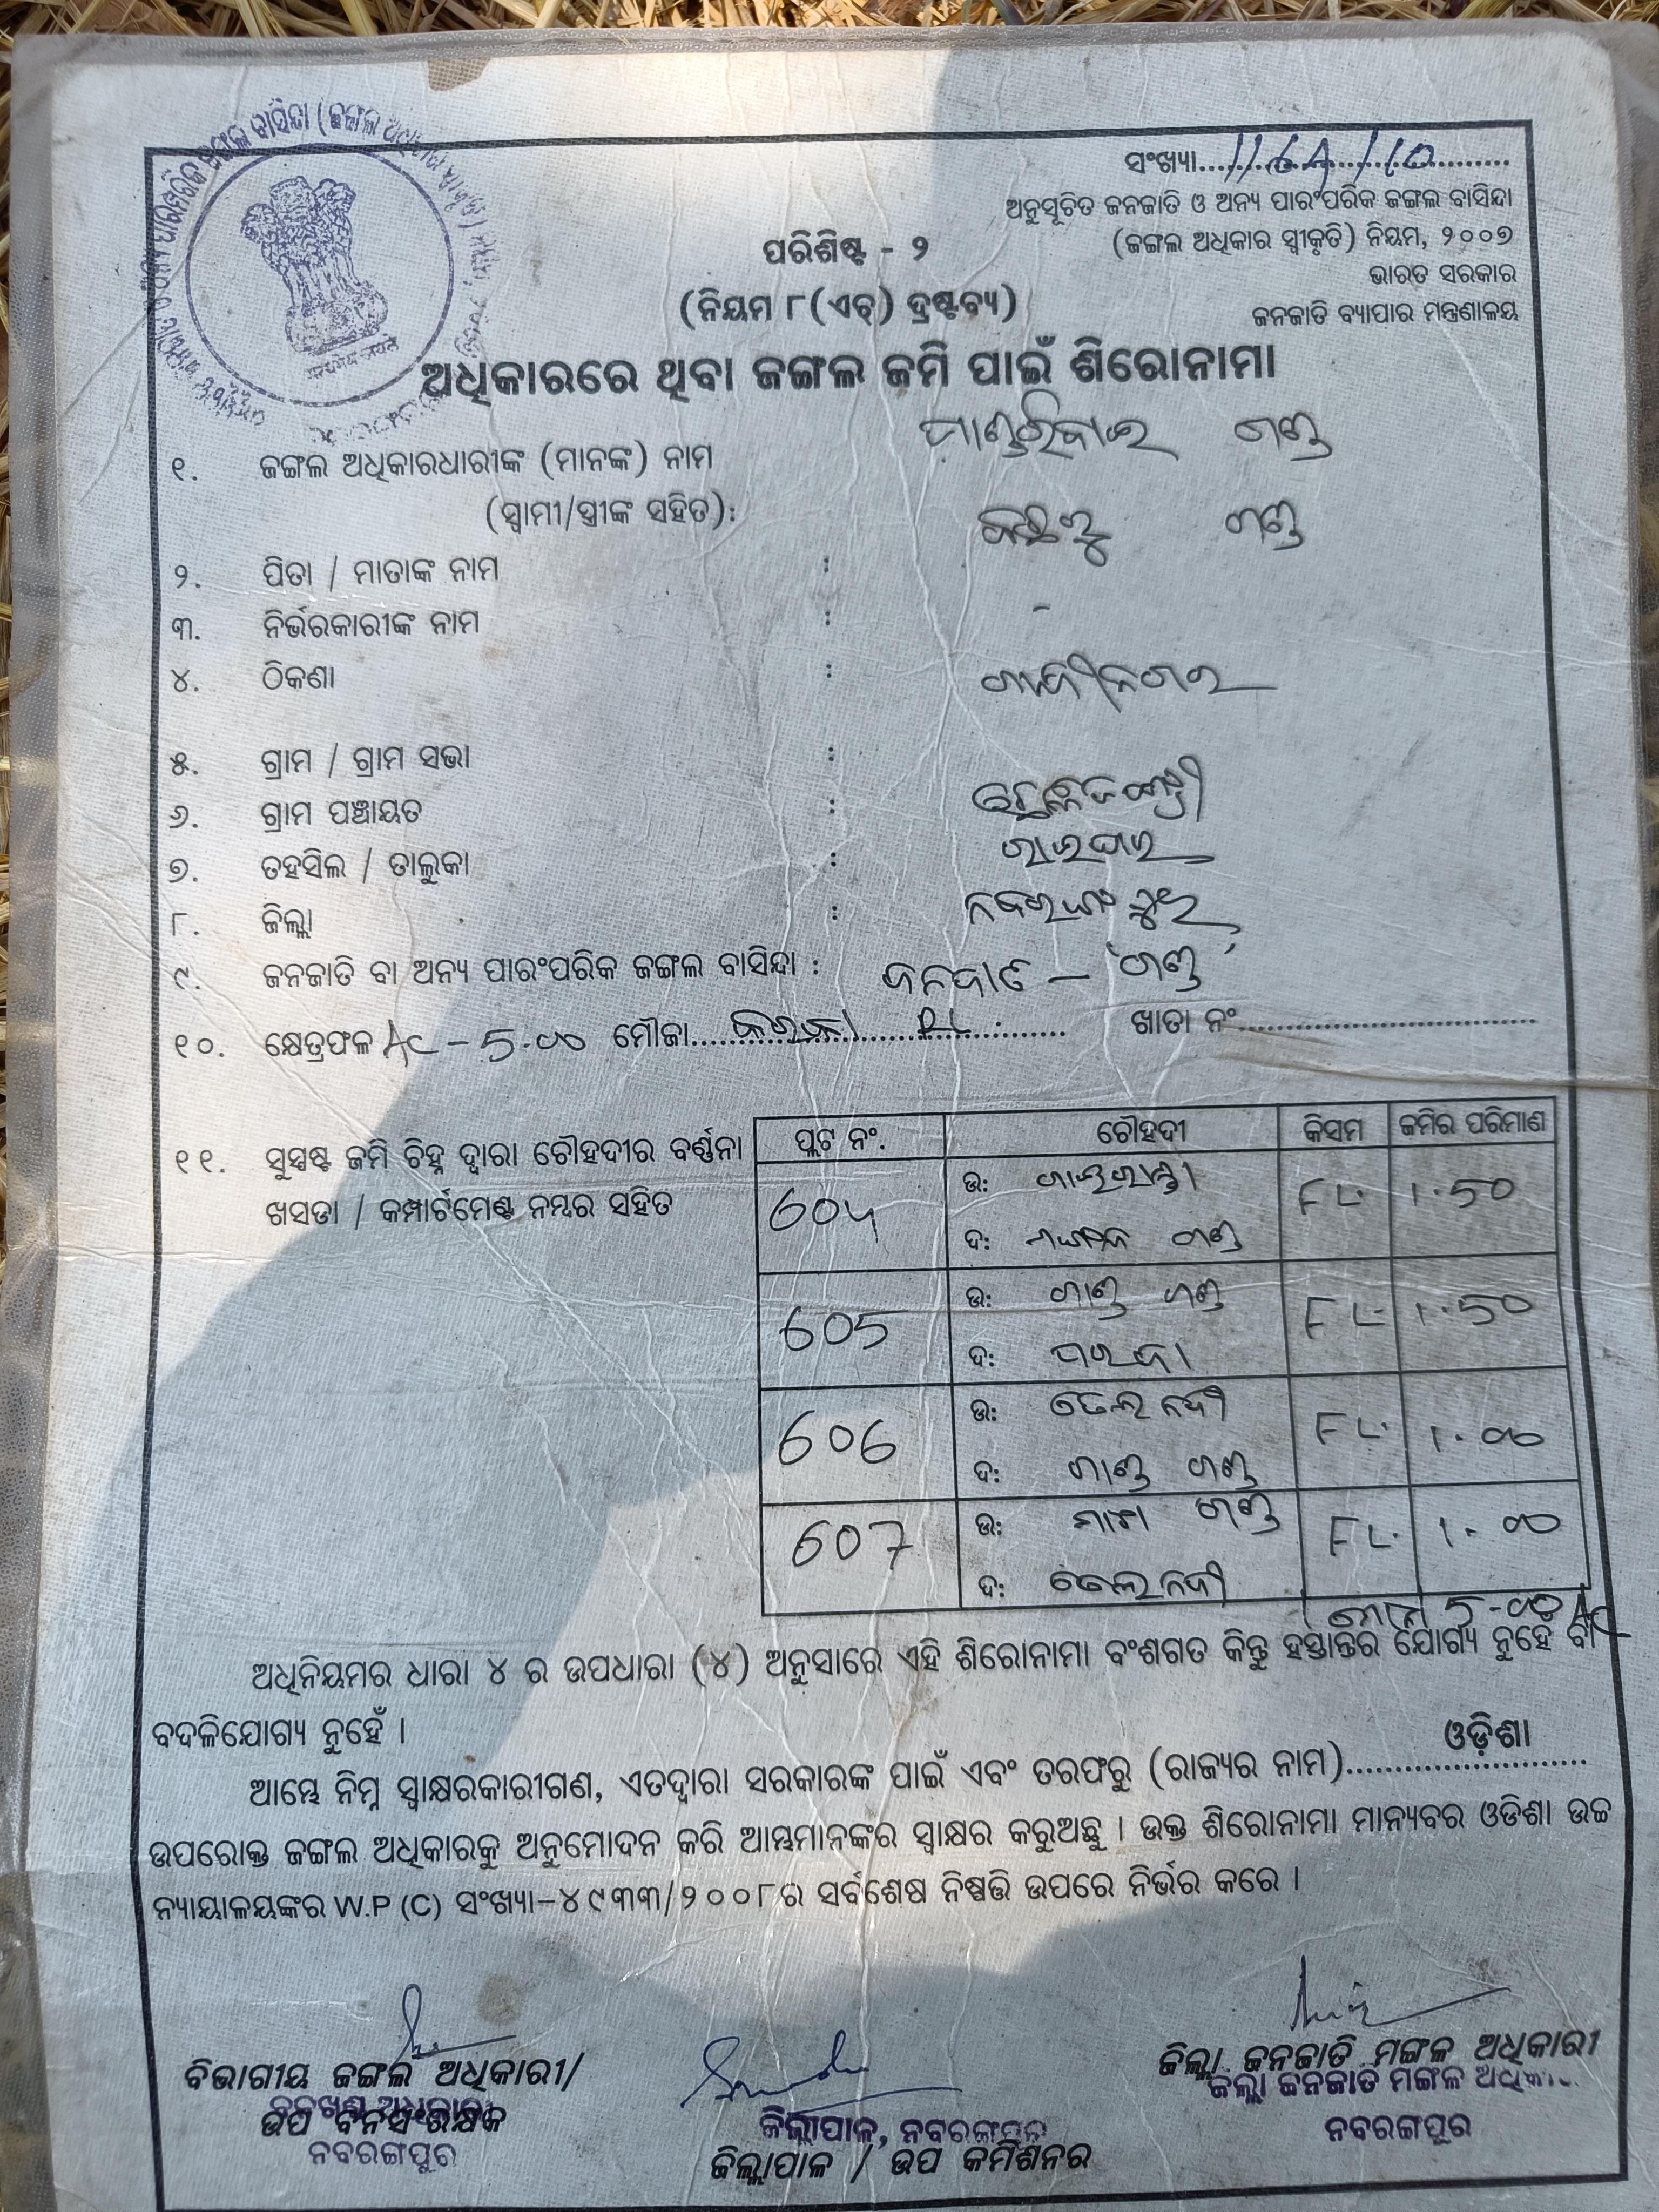 ସଂଖ୍ୟା...1164/10...
ଅନୁସୂଚିତ ଜନଜାତି ଓ ଅନ୍ୟ ପାରଂପରିକ ଜଙ୍ଗଲ ବାସିନ୍ଦା
(ଜଙ୍ଗଲ ଅଧିକାର ସ୍ୱୀକୃତି) ନିୟମ, ୨୦୦୭
ଭାରତ ସରକାର
ଜନଜାତି ବ୍ୟାପାର ମନ୍ତ୍ରଣାଳୟ
ପରିଶିଷ୍ଟ - ୨
(ନିୟମ ୮(ଏଚ୍) ଦ୍ରଷ୍ଟବ୍ୟ)
ଅଧିକାରରେ ଥିବା ଜଙ୍ଗଲ ଜମି ପାଇଁ ଶିରୋନାମା
୧. ଜଙ୍ଗଲ ଅଧିକାରଧାରୀଙ୍କ (ମାନଙ୍କ) ନାମ ଗଣ୍ଡ
(ସ୍ୱାମୀ/ସ୍ତ୍ରୀଙ୍କ ସହିତ): ଗଣ୍ଡ
୨. ପିତା / ମାତାଙ୍କ ନାମ :
୩. ନିର୍ଭରକାରୀଙ୍କ ନାମ : -
୪. ଠିକଣା : ଗାନ୍ଧୀନଗର
୫. ଗ୍ରାମ / ଗ୍ରାମ ସଭା :
୬. ଗ୍ରାମ ପଞ୍ଚାୟତ :
୭. ତହସିଲ / ତାଲୁକା : ରାଇଘର
୮. ଜିଲ୍ଲା : ନବରଙ୍ଗପୁର
୯. ଜନଜାତି ବା ଅନ୍ୟ ପାରଂପରିକ ଜଙ୍ଗଲ ବାସିନ୍ଦା : ଜନଜାତି – 'ଗଣ୍ଡ'
୧୦. କ୍ଷେତ୍ରଫଳ Ac - 5.00 ମୌଜା...... ଖାତା ନଂ......
୧୧. ସୁସ୍ପଷ୍ଟ ଜମି ଚିହ୍ନ ଦ୍ୱାରା ଚୌହଦୀର ବର୍ଣ୍ଣନା
ଖସଡା / କମ୍ପାର୍ଟମେଣ୍ଟ ନମ୍ବର ସହିତ
ପ୍ଲଟ ନଂ. ଚୌହଦୀ କିସମ ଜମିର ପରିମାଣ
ଉ: FL. 1.50
ଦ: ଗଣ୍ଡ
605 ଉ: ଗଣ୍ଡ FL. 1.50
ଦ:
606 ଉ: ତେଲ ନଦୀ FL. 1.00
ଦ: ଗଣ୍ଡ
607 ଉ: ଗଣ୍ଡ FL. 1.00
ଦ: ତେଲ ନଦୀ
5-00 Ac
ଅଧିନିୟମର ଧାରା ୪ ର ଉପଧାରା (୪) ଅନୁସାରେ ଏହି ଶିରୋନାମା ବଂଶଗତ କିନ୍ତୁ ହସ୍ତାନ୍ତର ଯୋଗ୍ୟ ନୁହେଁ ବା
ବଦଳିଯୋଗ୍ୟ ନୁହେଁ ।
ଆମ୍ଭେ ନିମ୍ନ ସ୍ୱାକ୍ଷରକାରୀଗଣ, ଏତଦ୍ୱାରା ସରକାରଙ୍କ ପାଇଁ ଏବଂ ତରଫରୁ (ରାଜ୍ୟର ନାମ)......ଓଡ଼ିଶା......
ଉପରୋକ୍ତ ଜଙ୍ଗଲ ଅଧିକାରକୁ ଅନୁମୋଦନ କରି ଆମ୍ଭମାନଙ୍କର ସ୍ୱାକ୍ଷର କରୁଅଛୁ । ଉକ୍ତ ଶିରୋନାମା ମାନ୍ୟବର ଓଡିଶା ଉଚ୍ଚ
ନ୍ୟାୟାଳୟଙ୍କର W.P (C) ସଂଖ୍ୟା-୪୯୩୩/୨୦୦୮ର ସର୍ବଶେଷ ନିଷ୍ପତ୍ତି ଉପରେ ନିର୍ଭର କରେ ।
ବିଭାଗୀୟ ଜଙ୍ଗଲ ଅଧିକାରୀ/
ଉପ ବନସଂରକ୍ଷକ
ନବରଙ୍ଗପୁର
ଜିଲ୍ଲାପାଳ, ନବରଙ୍ଗପୁର
ଜିଲ୍ଲାପାଳ / ଉପ କମିଶନର
ଜିଲ୍ଲା ଜନଜାତି ମଙ୍ଗଳ ଅଧିକାରୀ
ଜିଲ୍ଲା ଜନଜାତି ମଙ୍ଗଳ
ନବରଙ୍ଗପୁର